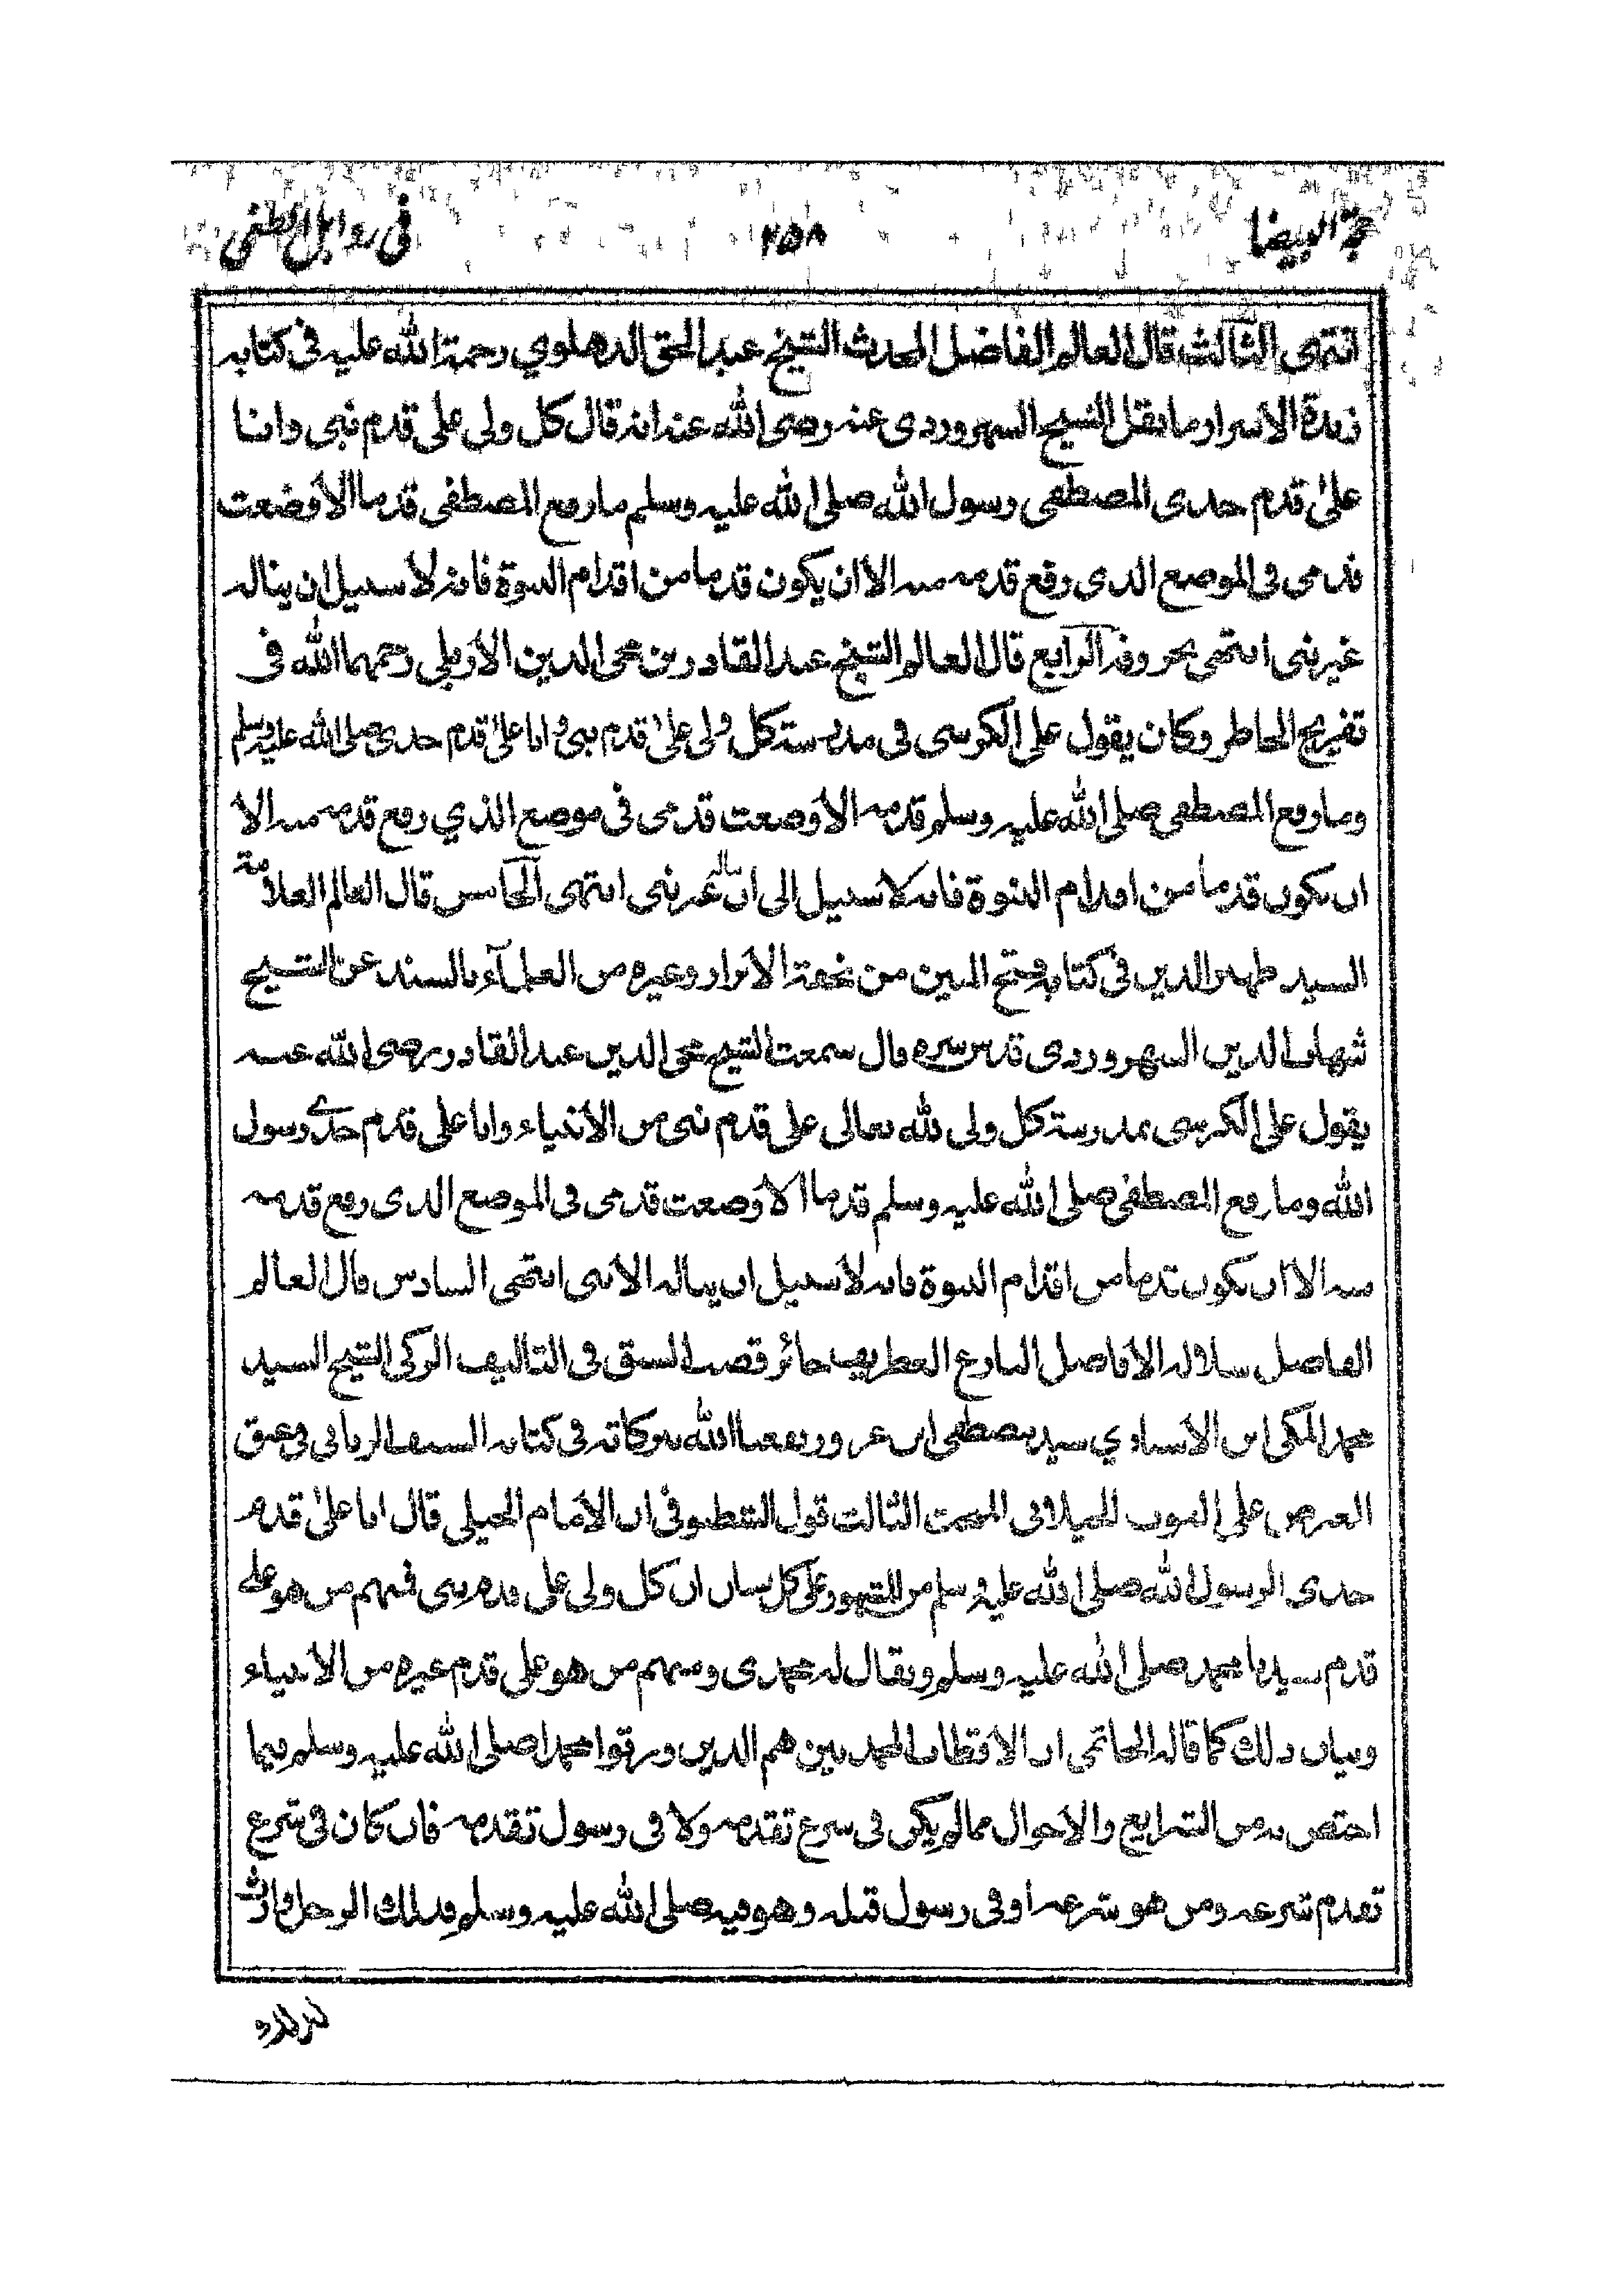 حجة البيضا ٢٥٨ في رد اهل الطغى
انتهى الثالث قال العالم الفاضل المحدث الشيخ عبد الحق الدهلوي رحمة الله عليه في كتابه
زبدة الاسرار ما نقل الشيخ السهروردى عنه رضى الله عنه انه قال كل ولى على قدم نبى وانا
على قدم جدى المصطفى رسول الله صلى الله عليه وسلم ما رفع المصطفى قدما الا وضعت
قدمى فى الموضع الذى رفع قدمه منه الا ان يكون قدما من اقدام النبوة فانه لا سبيل ان يناله
غير نبى انتهى بحروفه الرابع قال العالم الشيخ عبد القادر بن محى الدين الاربلى رحمهما الله فى
تفريح الخاطر وكان يقول على الكرسى فى مدرسته كل ولى على قدم نبى وانا على قدم جدى صلى الله عليه وسلم
وما رفع المصطفى صلى الله عليه وسلم قدمه الا وضعت قدمى فى موضع الذي رفع قدمه منه الا
ان يكون قدما من اقدام النبوة فانه لا سبيل الى ان يناله غير نبى انتهى الخامس قال العالم العلامة
السيد ظهير الدين فى كتابه فتح المبين من بحفة الابرار وغيره من العلمآء بالسند عن الشيخ
شهاب الدين السهروردى قدس سره قال سمعت الشيخ محى الدين عبد القادر رضى الله عنه
يقول على الكرسى بمدرسته كل ولى لله تعالى على قدم نبى من الانبياء وانا على قدم جدے رسول
الله وما رفع المصطفى صلى الله عليه وسلم قدما الا وضعت قدمى فى الموضع الذى رفع قدمه
منه الا ان يكون قدما من اقدام النبوة فانه لا سبيل ان يناله الا نبى انتهى السادس قال العالم
الفاضل سلالة الافاضل البارع الغطريف حائز قصب السبق فى التاليف الزكى الشيخ السيد
محمد المكى ابن الاستاذ ي سيد مصطفى ابن عزوز نفعنا الله ببركاته فى كتابه السيف الربانى فى عنق
المعترض على الغوث الجيلانى المبحث الثالث قول الشطنوفى ان الامام الجيلى قال انا على قدم
جدى الرسول الله صلى الله عليه وسلم من المشهور على كل لسان ان كل ولى على قدم نبى فمنهم من هو على
قدم سيدنا محمد صلى الله عليه وسلم ويقال له محمدى ومنهم من هو على قدم غيره من الانبياء
وبيان ذلك كما قاله الحاتمى ان الاقطاب المحمديين هم الذين ورثوا محمدا صلى الله عليه وسلم فيما
اختص به من الشرايع والاحوال مما لم يكن فى شرع تقدمه ولا فى رسول تقدمه فان كان فى شرع
تقدم شرعه ومن هو شرعه أو فى رسول قبله وهو فيه صلى الله عليه وسلم فذلك الرجل وارث